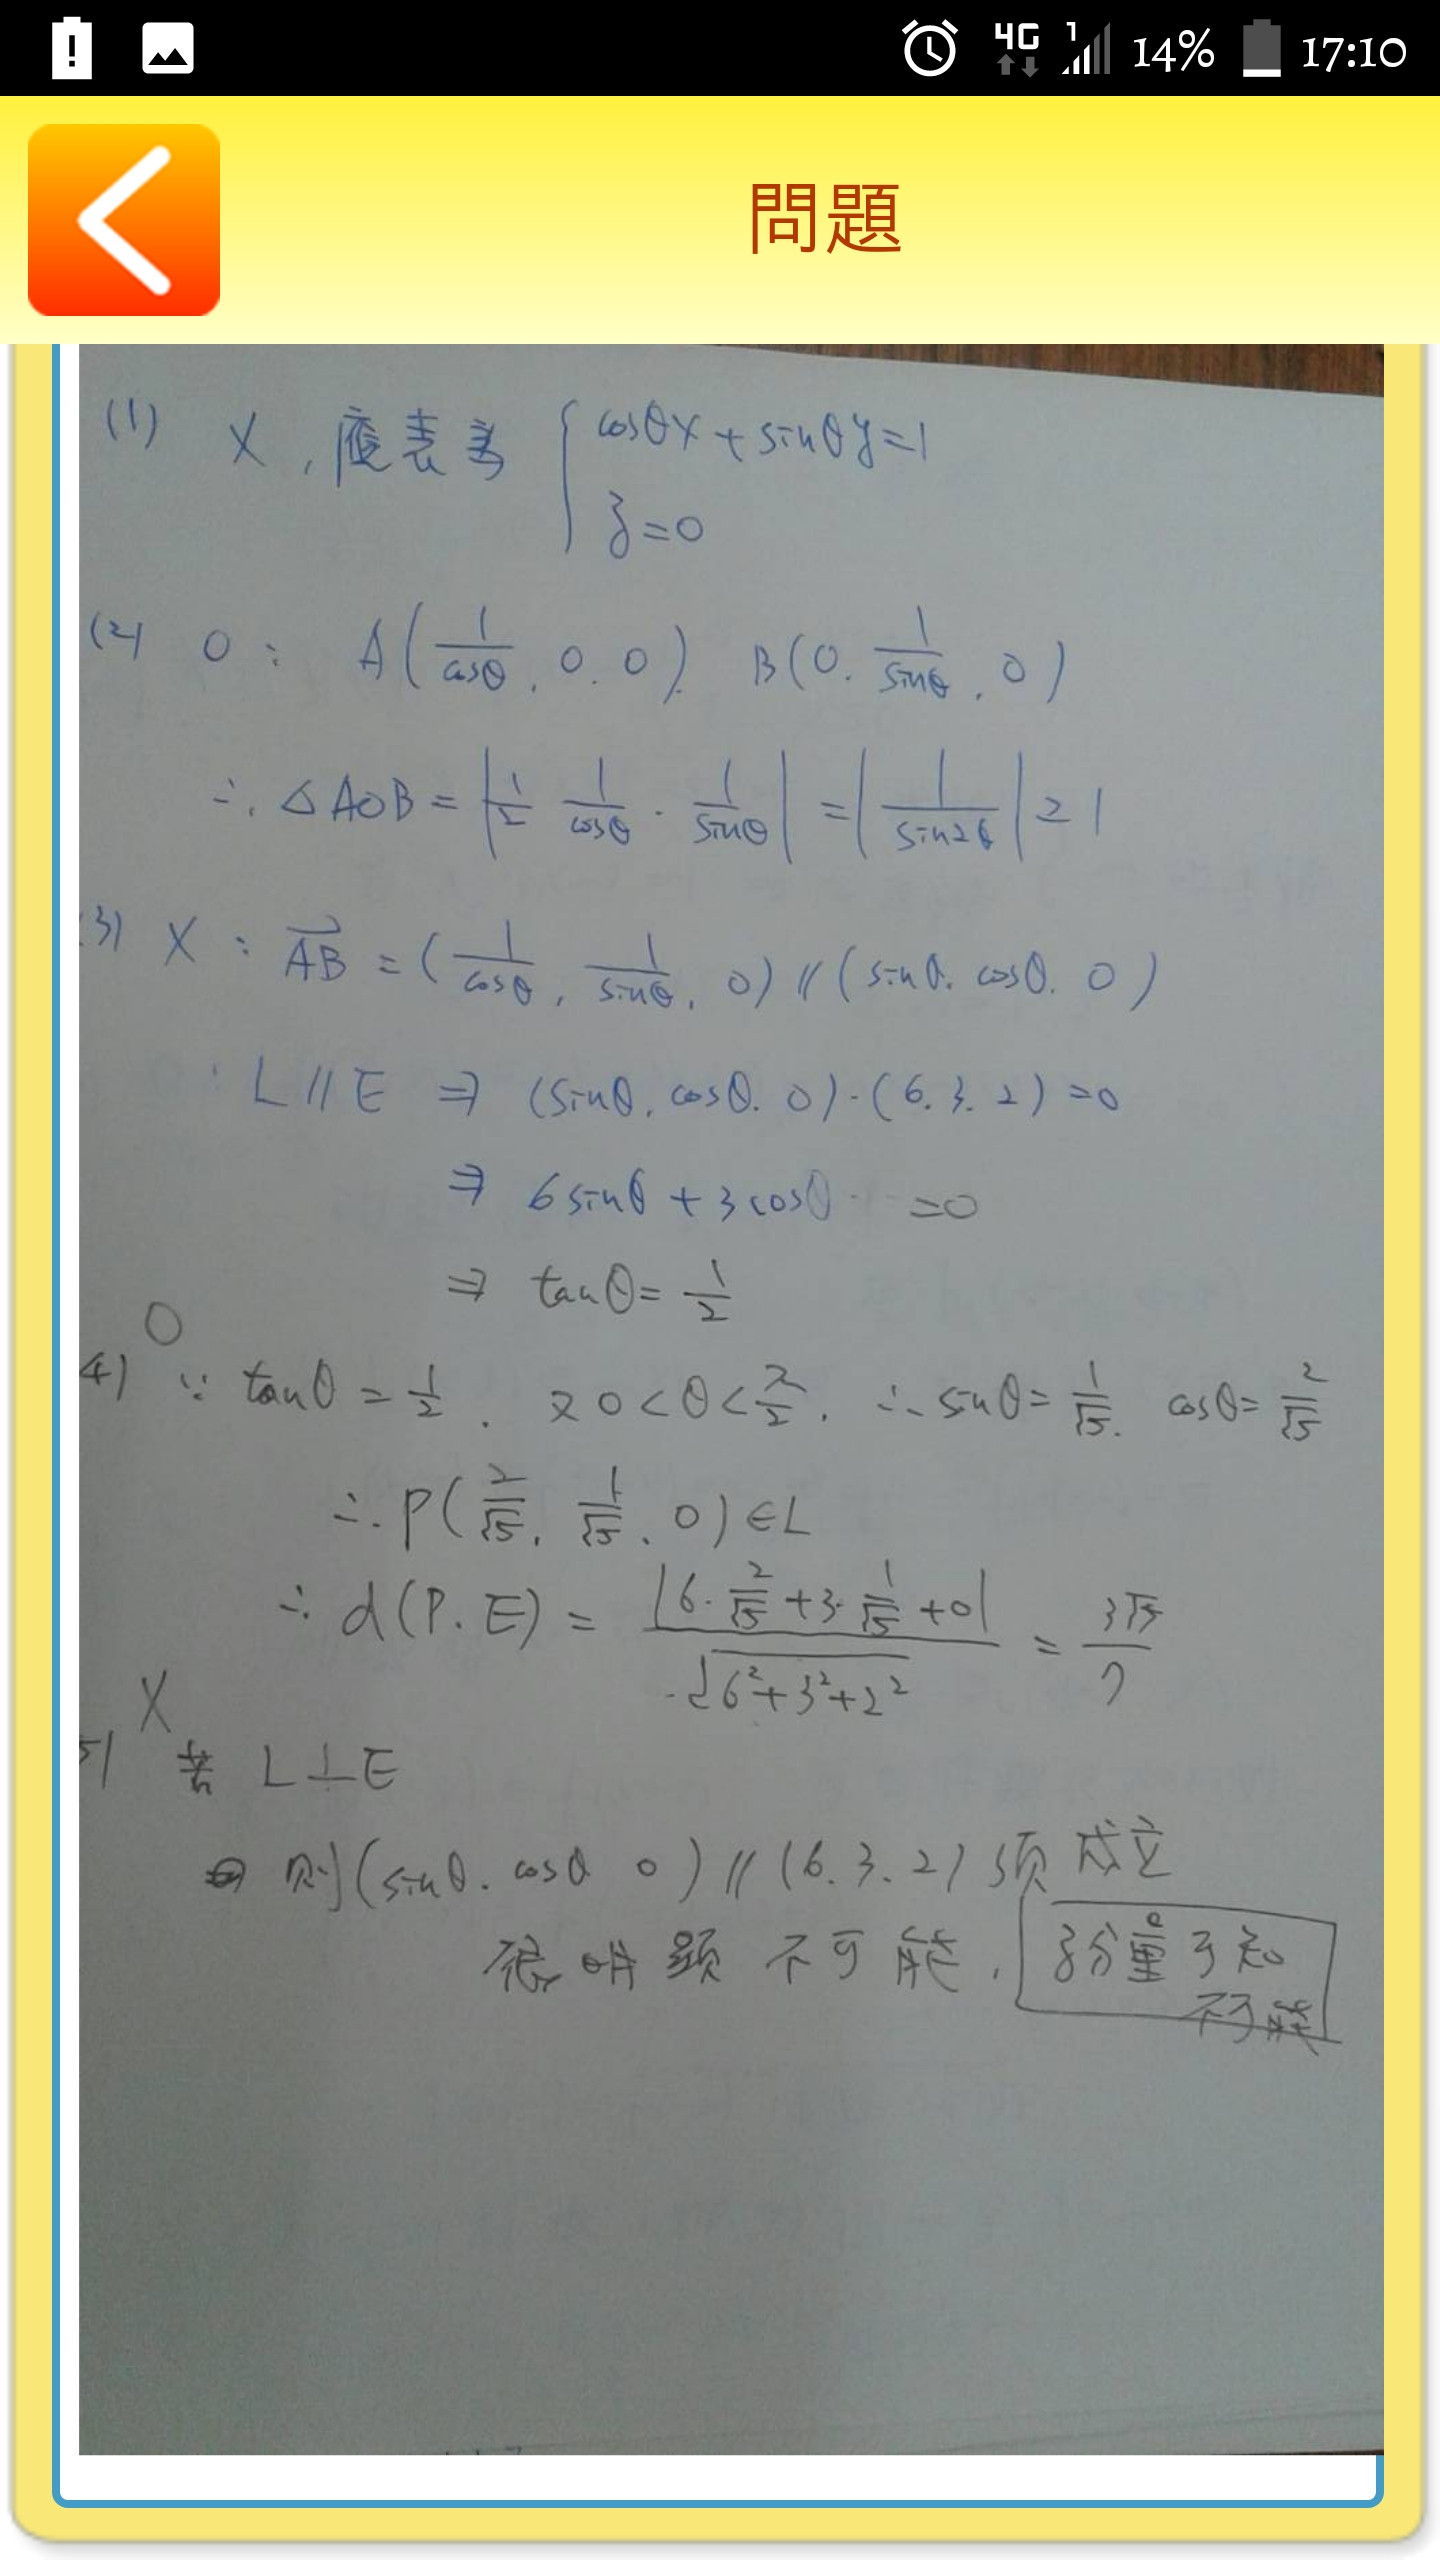 14% 17:10
4G 1
問題
(1) X, 應表為 { cosθx + sinθy = 1
z = 0
(2) O : A(1/cosθ, 0, 0) B(0, 1/sinθ, 0)
∴ △AOB = |1/2 1/cosθ · 1/sinθ| = |1/sin2θ| ≥ 1
3) X : AB = (1/cosθ, 1/sinθ, 0) // (sinθ, cosθ, 0)
L // E ⇒ (sinθ, cosθ, 0)·(6, 3, 2) = 0
⇒ 6sinθ + 3cosθ = 0
⇒ tanθ = 1/2
O
4) ∵ tanθ = 1/2, 又 0 < θ < π/2, ∴ sinθ = 1/√5, cosθ = 2/√5
∴ P(2/√5, 1/√5, 0) ∈ L
∴ d(P, E) = |6·2/√5 + 3·1/√5 + 0| / √(6²+3²+2²) = 3√5/7
X
5) 若 L⊥E
則(sinθ, cosθ 0) // (6, 3, 2) 須成立
很明顯不可能, z分量可知
不可能